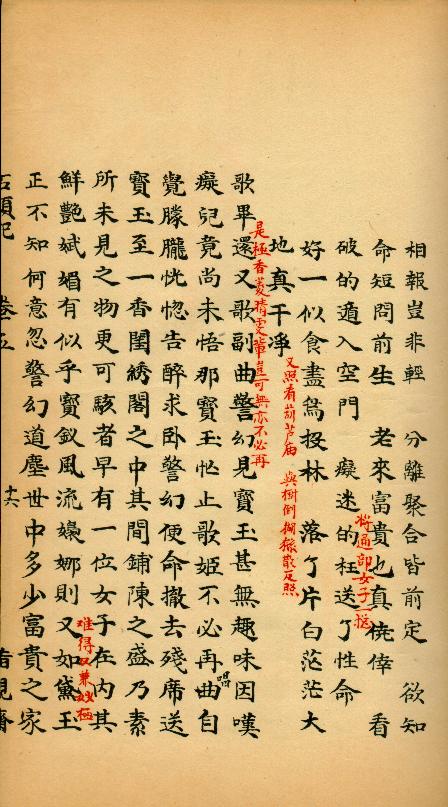 相報豈非輕　分離聚合皆前定　欲知
命短問前生　老來富貴也真僥倖　看
破的遁入空門　癡迷的枉送了性命
將通部女子一總
好一似食盡鳥投林　落了片白茫茫大
又照看葫芦庙　與樹倒猢猻散反照
地真干凈
是極香菱晴雯輩豈可無亦不必再
歌畢還又歌副曲警幻見寶玉甚無趣味因嘆
癡兒竟尚未悟那寶玉忙止歌姬不必再唱曲自
覺朦朧恍惚告醉求卧警幻便命撤去殘席送
寶玉至一香閨綉閣之中其間鋪陳之盛乃素
所未見之物更可駭者早有一位女子在内其
难得双兼妙極
鮮艷斌媚有似乎寶釵風流嬝娜則又如黛玉
正不知何意忽警幻道塵世中多少富貴之家
石頭記　卷五　十六